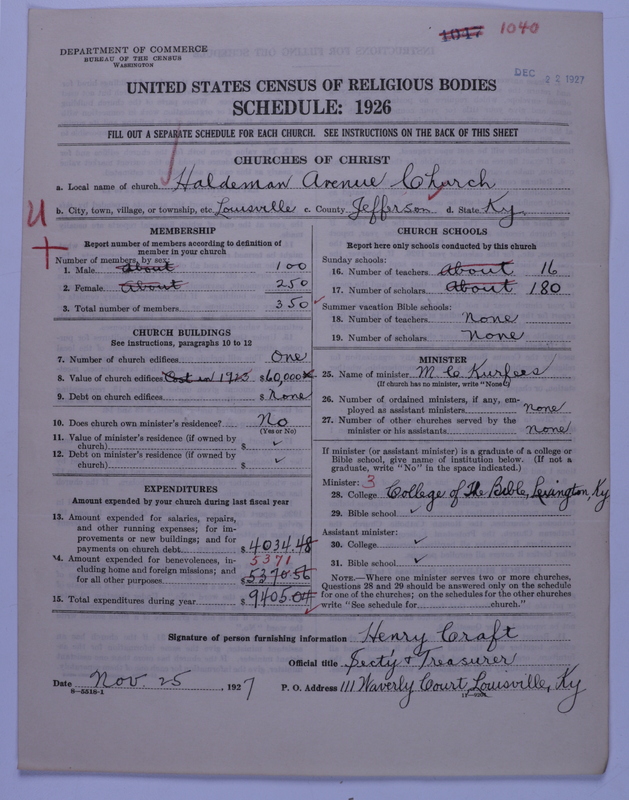 1047 1040
DEPARTMENT OF COMMERCE
BUREAU OF THE CENSUS
WASHINGTON
DEC 22 1927
UNITED STATES CENSUS OF RELIGIOUS BODIES
SCHEDULE: 1926
FILL OUT A SEPARATE SCHEDULE FOR EACH CHURCH. SEE INSTRUCTIONS ON THE BACK OF THIS SHEET
CHURCHES OF CHRIST
a. Local name of church Haldeman Avenue Church
b. City, town, village, or township, etc. Louisville c. County Jefferson d. State Ky.
U
MEMBERSHIP
Report number of members according to definition of
member in your church
Number of members, by sex:
1. Male About 100
2. Female About 250
3. Total number of members 350
CHURCH BUILDINGS
See instructions, paragraphs 10 to 12
7. Number of church edifices One
8. Value of church edifices Cost in 1915 $60,000
9. Debt on church edifices $ None
10. Does church own minister's residence? No
(Yes or No)
11. Value of minister's residence (if owned by
church) $ ✓
12. Debt on minister's residence (if owned by
church) $ ✓
EXPENDITURES
Amount expended by your church during last fiscal year
13. Amount expended for salaries, repairs,
and other running expenses; for im-
provements or new buildings; and for
payments on church debt $ 4034.48
5371
14. Amount expended for benevolences, in-
cluding home and foreign missions; and
for all other purposes $ 5370.56
15. Total expenditures during year $ 9405.04
CHURCH SCHOOLS
Report here only schools conducted by this church
Sunday schools:
16. Number of teachers About 16
17. Number of scholars About 180
Summer vacation Bible schools:
18. Number of teachers None
19. Number of scholars None
MINISTER
25. Name of minister M. C. Kurfees
(If church has no minister, write "None")
26. Number of ordained ministers, if any, em-
ployed as assistant ministers none
27. Number of other churches served by the
minister or his assistants none
If minister (or assistant minister) is a graduate of a college or
Bible school, give name of institution below. (If not a
graduate, write "No" in the space indicated.)
Minister: 3
28. College College of The Bible, Lexington, Ky
29. Bible school ✓
Assistant minister:
30. College ✓
31. Bible school ✓
NOTE.—Where one minister serves two or more churches,
Questions 28 and 29 should be answered only on the schedule
for one of the churches; on the schedules for the other churches
write "See schedule for church."
Signature of person furnishing information Henry Craft
Official title Secty & Treasurer
Date Nov. 25, 1927 P. O. Address 111 Waverly Court, Louisville, Ky
8-5518-1